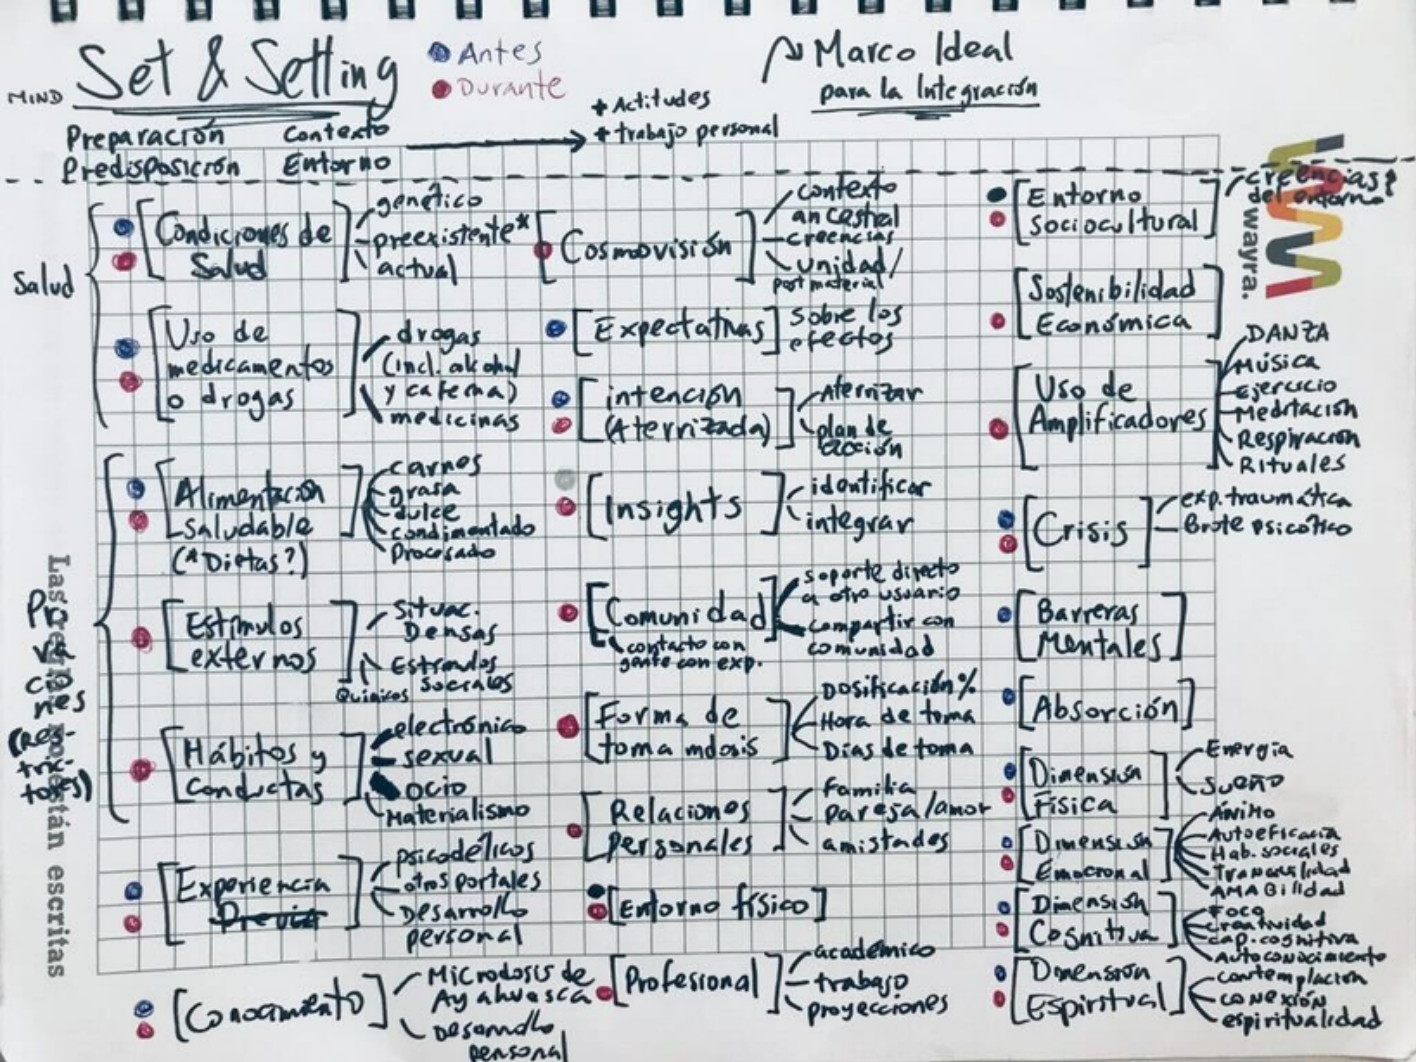 MIND Set & Setting
Antes
Durante
Marco Ideal
para la Integración
Preparación Contexto
Predisposición Entorno
+ Actitudes
+ trabajo personal
Salud
Condiciones de
Salud
genético
preexistente*
actual
Uso de
medicamentos
o drogas
drogas
(incl. alkohol
y cafeína)
medicinas
Privaciones
(Restrictores)
Alimentación
saludable
(*Dietas?)
carnes
grasa
dulce
condimentado
Procesado
Estímulos
externos
Situac.
Densas
Estímulos
sociales
Químicos
Hábitos y
conductas
electrónico
sexual
ocio
Materialismo
Experiencia
Previa
psicodélicos
otros portales
Desarrollo
personal
Conocimiento
Microdosis de
Ayahuasca
Desarrollo
personal
Cosmovisión
contexto
ancestral
creencias
unidad/
post material
Expectativas
sobre los
efectos
intención
(Aterrizada)
Aterrizar
plan de
acción
Insights
identificar
integrar
Comunidad
contacto con
gente con exp.
soporte directo
a otro usuario
compartir con
comunidad
Forma de
toma mdosis
Dosificación %
Hora de toma
Días de toma
Relaciones
personales
Familia
pareja/amor
amistades
Entorno físico
Profesional
académico
trabajo
proyecciones
Entorno
sociocultural
creencias
del entorno
Sostenibilidad
Económica
Uso de
Amplificadores
DANZA
Música
Ejercicio
Meditación
Respiración
Rituales
Crisis
exp. traumática
Brote psicótico
Barreras
Mentales
Absorción
Dimensión
Física
Energía
sueño
Dimensión
Emocional
Ánimo
Autoeficacia
Hab. sociales
Tranquilidad
AMABilidad
Dimensión
Cognitiva
Foco
creatividad
cap. cognitiva
Autoconocimiento
Dimensión
Espiritual
contemplación
conexión
espiritualidad
wayra.
Las
están escritas